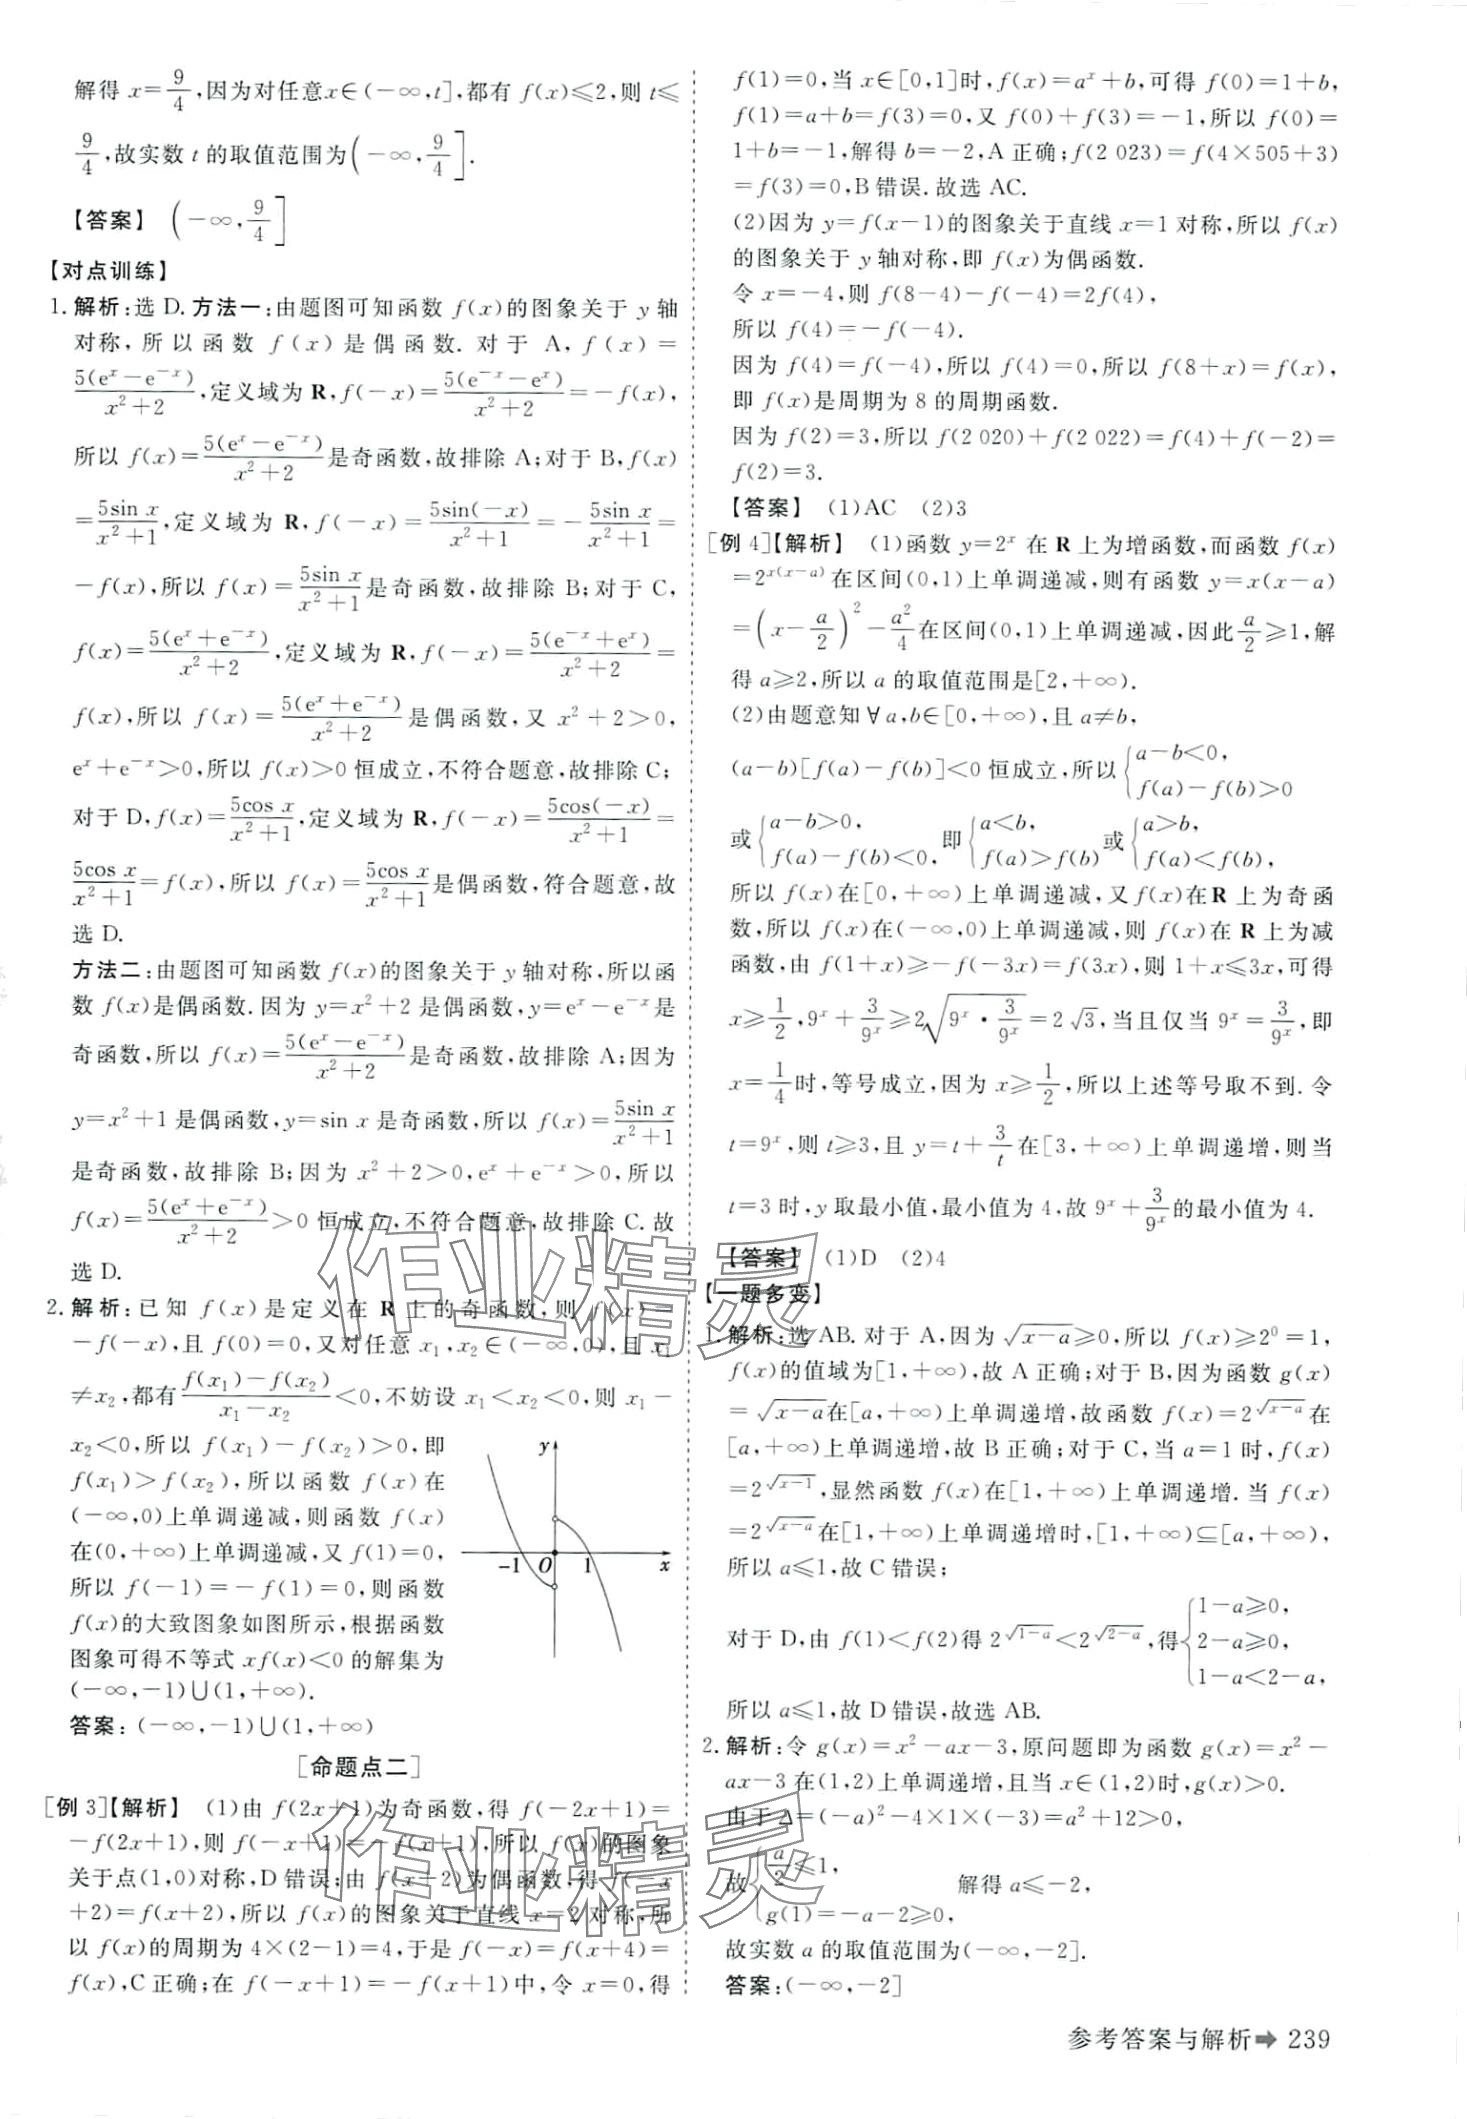 解得 x=9/4,因为对任意x∈(-∞,t],都有 f(x)≤2,则 t≤
9/4,故实数 t 的取值范围为(-∞,9/4].
【答案】 (-∞,9/4]
【对点训练】
1.解析:选 D.方法一:由题图可知函数 f(x)的图象关于 y 轴
对称,所以函数 f(x)是偶函数.对于 A,f(x)=
5(eˣ-e⁻ˣ)/(x²+2),定义域为 R,f(-x)=5(e⁻ˣ-eˣ)/(x²+2)=-f(x),
所以 f(x)=5(eˣ-e⁻ˣ)/(x²+2)是奇函数,故排除 A;对于 B,f(x)
=5sin x/(x²+1),定义域为 R,f(-x)=5sin(-x)/(x²+1)=-5sin x/(x²+1)=
-f(x),所以 f(x)=5sin x/(x²+1)是奇函数,故排除 B;对于 C,
f(x)=5(eˣ+e⁻ˣ)/(x²+2),定义域为 R,f(-x)=5(e⁻ˣ+eˣ)/(x²+2)=
f(x),所以 f(x)=5(eˣ+e⁻ˣ)/(x²+2)是偶函数,又 x²+2>0,
eˣ+e⁻ˣ>0,所以 f(x)>0 恒成立,不符合题意,故排除 C;
对于 D,f(x)=5cos x/(x²+1),定义域为 R,f(-x)=5cos(-x)/(x²+1)=
5cos x/(x²+1)=f(x),所以 f(x)=5cos x/(x²+1)是偶函数,符合题意,故
选 D.
方法二:由题图可知函数 f(x)的图象关于 y 轴对称,所以函
数 f(x)是偶函数.因为 y=x²+2 是偶函数,y=eˣ-e⁻ˣ是
奇函数,所以 f(x)=5(eˣ-e⁻ˣ)/(x²+2)是奇函数,故排除 A;因为
y=x²+1 是偶函数,y=sin x 是奇函数,所以 f(x)=5sin x/(x²+1)
是奇函数,故排除 B;因为 x²+2>0,eˣ+e⁻ˣ>0,所以
f(x)=5(eˣ+e⁻ˣ)/(x²+2)>0 恒成立,不符合题意,故排除 C.故
选 D.
2.解析:已知 f(x)是定义在 R 上的奇函数,则 f(x)=
-f(-x),且 f(0)=0,又对任意 x₁,x₂∈(-∞,0),且 x₁
≠x₂,都有(f(x₁)-f(x₂))/(x₁-x₂)<0,不妨设 x₁<x₂<0,则 x₁-
x₂<0,所以 f(x₁)-f(x₂)>0,即
f(x₁)>f(x₂),所以函数 f(x)在
(-∞,0)上单调递减,则函数 f(x)
在(0,+∞)上单调递减,又 f(1)=0,
所以 f(-1)=-f(1)=0,则函数
f(x)的大致图象如图所示,根据函数
图象可得不等式 xf(x)<0 的解集为
(-∞,-1)∪(1,+∞).
y
-1 O 1 x
答案:(-∞,-1)∪(1,+∞)
[命题点二]
[例 3]【解析】 (1)由 f(2x+1)为奇函数,得 f(-2x+1)=
-f(2x+1),则 f(-x+1)=-f(x+1),所以 f(x)的图象
关于点(1,0)对称,D 错误;由 f(x+2)为偶函数,得 f(-x
+2)=f(x+2),所以 f(x)的图象关于直线 x=2 对称,所
以 f(x)的周期为 4×(2-1)=4,于是 f(-x)=f(x+4)=
f(x),C 正确;在 f(-x+1)=-f(x+1)中,令 x=0,得
f(1)=0,当 x∈[0,1]时,f(x)=aˣ+b,可得 f(0)=1+b,
f(1)=a+b=f(3)=0,又 f(0)+f(3)=-1,所以 f(0)=
1+b=-1,解得 b=-2,A 正确;f(2 023)=f(4×505+3)
=f(3)=0,B 错误.故选 AC.
(2)因为 y=f(x-1)的图象关于直线 x=1 对称,所以 f(x)
的图象关于 y 轴对称,即 f(x)为偶函数.
令 x=-4,则 f(8-4)-f(-4)=2f(4),
所以 f(4)=-f(-4).
因为 f(4)=f(-4),所以 f(4)=0,所以 f(8+x)=f(x),
即 f(x)是周期为 8 的周期函数.
因为 f(2)=3,所以 f(2 020)+f(2 022)=f(4)+f(-2)=
f(2)=3.
【答案】 (1)AC (2)3
[例 4]【解析】 (1)函数 y=2ˣ 在 R 上为增函数,而函数 f(x)
=2^(x(x-a))在区间(0,1)上单调递减,则有函数 y=x(x-a)
=(x-a/2)²-a²/4在区间(0,1)上单调递减,因此a/2≥1,解
得 a≥2,所以 a 的取值范围是[2,+∞).
(2)由题意知∀a,b∈[0,+∞),且 a≠b,
(a-b)[f(a)-f(b)]<0 恒成立,所以{a-b<0,f(a)-f(b)>0
或{a-b>0,f(a)-f(b)<0,即{a<b,f(a)>f(b)或{a>b,f(a)<f(b),
所以 f(x)在[0,+∞)上单调递减,又 f(x)在 R 上为奇函
数,所以 f(x)在(-∞,0)上单调递减,则 f(x)在 R 上为减
函数,由 f(1+x)≥-f(-3x)=f(3x),则 1+x≤3x,可得
x≥1/2,9ˣ+3/9ˣ≥2√(9ˣ·3/9ˣ)=2√3,当且仅当 9ˣ=3/9ˣ,即
x=1/4时,等号成立,因为 x≥1/2,所以上述等号取不到.令
t=9ˣ,则 t≥3,且 y=t+3/t在[3,+∞)上单调递增,则当
t=3 时,y 取最小值,最小值为 4,故 9ˣ+3/9ˣ的最小值为 4.
【答案】 (1)D (2)4
【一题多变】
1.解析:选 AB.对于 A,因为√(x-a)≥0,所以 f(x)≥2⁰=1,
f(x)的值域为[1,+∞),故 A 正确;对于 B,因为函数 g(x)
=√(x-a)在[a,+∞)上单调递增,故函数 f(x)=2^√(x-a)在
[a,+∞)上单调递增,故 B 正确;对于 C,当 a=1 时,f(x)
=2^√(x-1),显然函数 f(x)在[1,+∞)上单调递增.当 f(x)
=2^√(x-a)在[1,+∞)上单调递增时,[1,+∞)⊆[a,+∞),
所以 a≤1,故 C 错误;
对于 D,由 f(1)<f(2)得 2^√(1-a)<2^√(2-a),得{1-a≥0,2-a≥0,1-a<2-a,
所以 a≤1,故 D 错误,故选 AB.
2.解析:令 g(x)=x²-ax-3,原问题即为函数 g(x)=x²-
ax-3 在(1,2)上单调递增,且当 x∈(1,2)时,g(x)>0.
由于 Δ=(-a)²-4×1×(-3)=a²+12>0,
故{a/2≤1,g(1)=-a-2≥0,解得 a≤-2,
故实数 a 的取值范围为(-∞,-2].
答案:(-∞,-2]
作业精灵
作业精灵
参考答案与解析➡239